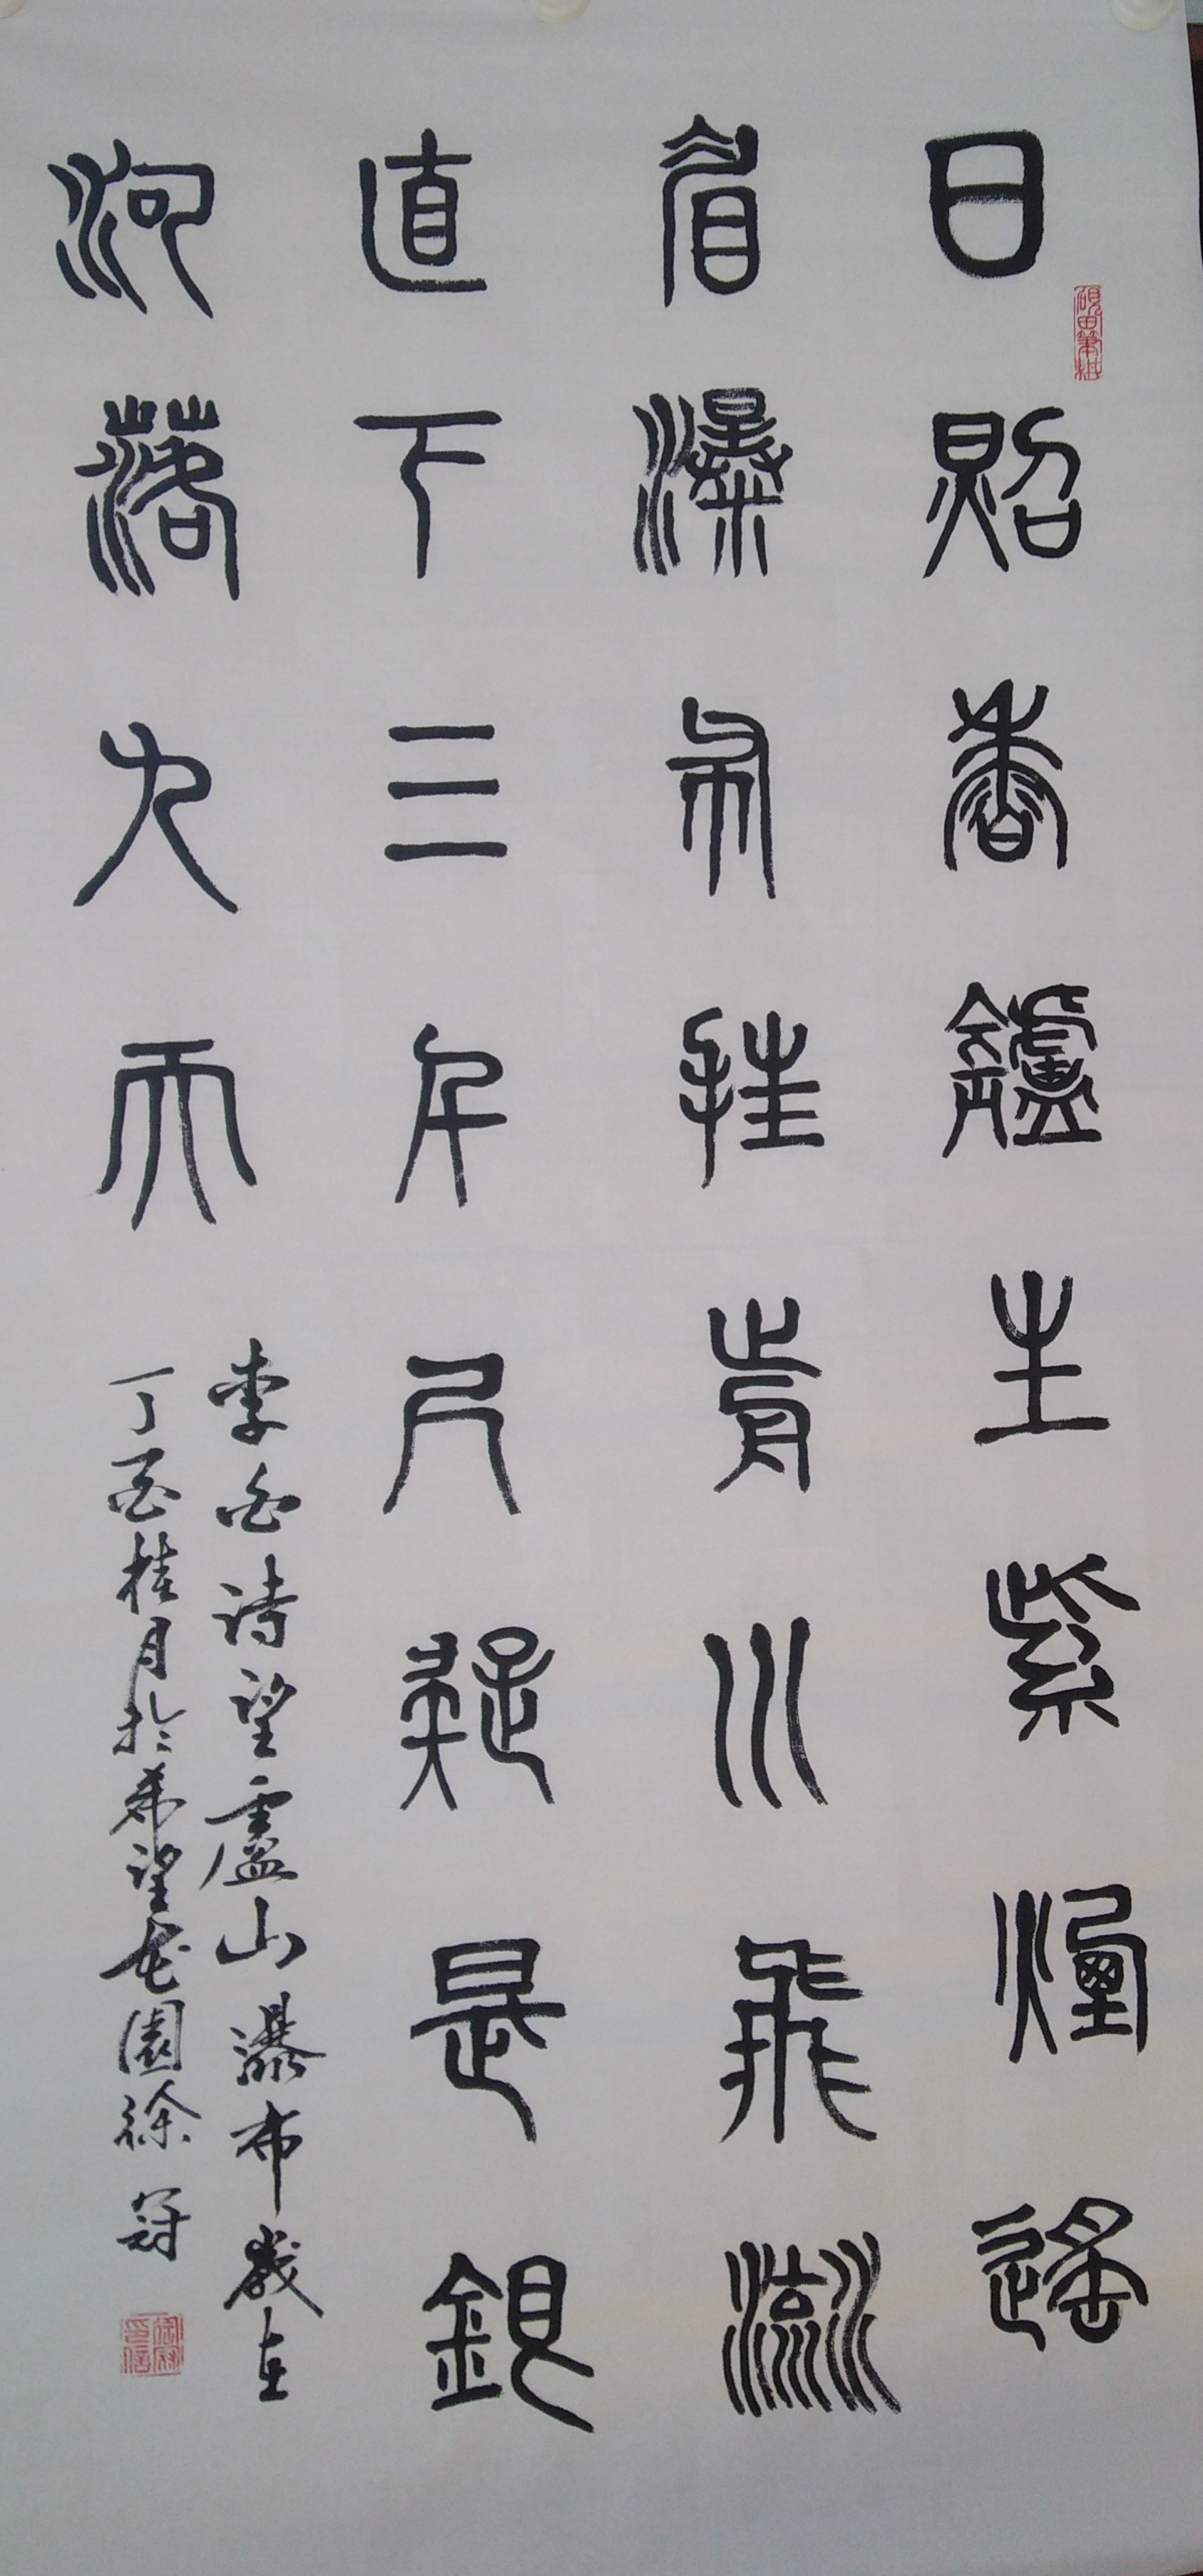 日照香鑪生紫煙遙
看瀑布挂前川飛流
直下三千尺疑是銀
河落九天
李白诗望廬山瀑布歲在
丁酉桂月於希望花園徐冠
硯田筆耕
徐冠印信